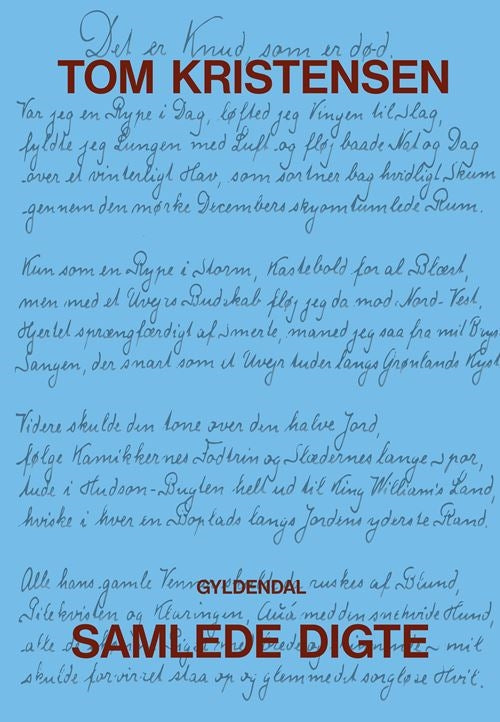 Det er Knud, som er død.
TOM KRISTENSEN
Var jeg en Rype i Dag, løfted jeg Vingen til Slag,
fyldte jeg Lungen med Luft og fløj baade Nat og Dag
over et vinterligt Hav, som sortner bag hvidligt Skum
gennem den mørke Decembers skyomtumlede Rum.
Kun som en Rype i Storm, Kastebold for al Blæst,
men med et Uvejrs Budskab fløj jeg da mod Nord-Vest,
Hjertet sprængfærdigt af Smerte, maned jeg saa fra mit Brys
Sangen, der snart som et Uvejr tuder langs Grønlands Kyst
Videre skulde den tone over den halve Jord,
følge Kamikkernes Fodtrin og Slædernes lange Spor,
tude i Hudson-Bugten helt ud til King William's Land
hviske i hver en Boplads langs Jordens yderste Rand.
Alle hans gamle Venner skulde ruskes af Blund,
GYLDENDAL
Pilekvisten og Kæuringen, Auá med den snehvide Hund,
SAMLEDE DIGTE
skulde forvirret staa op og glemme det sorgløse Hvil.